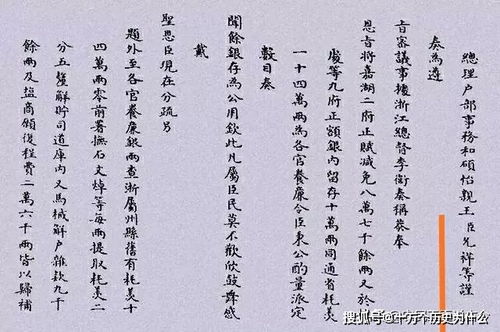 總理戶部事務和碩怡親王臣允祥等謹
奏為遵
旨審議事據浙江總督李衛奏稱恭奉
恩旨將嘉湖二府正賦減免八萬七千餘兩又於
俊等九府正額銀內留存十萬兩同通省耗羨
一十四萬兩為各官養廉令臣秉公酌量派定
數目奏
聞餘銀存為公用欽此凡屬臣民莫不歡欣鼓舞感
戴
聖恩臣現在分疏另
題外至各官養廉銀兩查浙屬州縣舊有耗羨十
四萬兩零前署撫石文焯等每兩提取耗羨二
分五釐解貯司道庫內又馬械解戶雜款九千
餘兩及鹽商願復程費二萬六千兩皆以歸補
搜狐号@千万个历史为什么